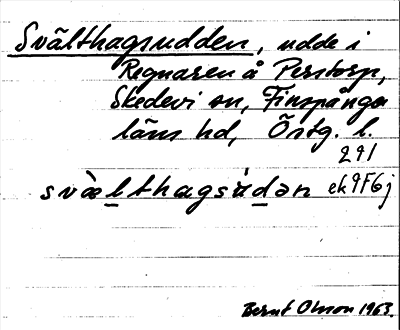 Svälthagsudden, udde i
Regnaren å Perstorp,
Skedevi sn, Finspånga
läns hd, Östg. l.
291
svæ̀lthagsu̇dən ek9F6j
Bernt Olsson 1963.